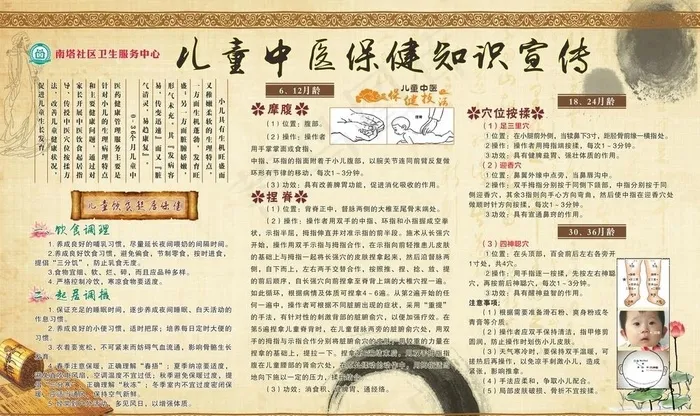 南塔社区卫生服务中心
儿童中医保健知识宣传
小儿具有生机旺盛而
又稚嫩柔软的生理特点，
一方面生机蓬勃，发育旺
盛；另一方面脏腑娇嫩，
形气未充。其“发病容
易，传变迅速”而又“脏
气清灵，易趋康复”。
0-36个月儿童中
医药健康管理服务主要是
针对小儿的生理病理特点
和主要健康问题，通过对
家长开展中医饮食起居指
导、传授中医穴位按揉方
法，改善儿童健康状况，
促进儿童生长发育。
儿童饮食起居保健
饮食调理
1.养成良好的哺乳习惯，尽量延长夜间喂奶的间隔时间。
2.养成良好饮食习惯，避免偏食，节制零食，按时进食，
提倡“三分饥”，防止乳食无度。
3.食物宜细、软、烂、碎，而且应品种多样。
4.严格控制冷饮，寒凉食物要适度。
起居调摄
1.保证充足的睡眠时间，逐步养成夜间睡眠、白天活动的
作息习惯。
2.养成良好的小便习惯，适时把尿；培养每日定时大便的
习惯。
3.衣着要宽松，不可紧束而妨碍气血流通，影响骨骼生长
发育。
4.春季注意保暖，正确理解“春捂”；夏季纳凉要适度，
避免直吹电风扇，空调温度不宜过低；秋季避免保暖过度，提
倡“三分寒”，正确理解“秋冻”；冬季室内不宜过度密闭保
暖，应适当通风，保持空气新鲜。
5.经常到户外活动，多见风日，以增强体质。
6、12月龄
儿童中医
保健技法
摩腹
（1）位置：腹部。
（2）操作：操作者
用手掌掌面或食指、
中指、环指的指面附着于小儿腹部，以腕关节连同前臂反复做
环形有节律的移动，每次1-3分钟。
（3）功效：具有改善脾胃功能，促进消化吸收的作用。
捏脊
（1）位置：背脊正中，督脉两侧的大椎至尾骨末端处。
（2）操作：操作者用双手的中指、环指和小指握成空拳
状，示指半屈，拇指伸直并对准示指的前半段。施术从长强穴
开始，操作用双手示指与拇指合作，在示指向前轻推患儿皮肤
的基础上与拇指一起将长强穴的皮肤捏拿起来，然后沿督脉两
侧，自下而上，左右两手交替合作，按照推、捏、捻、放、提
的前后顺序，自长强穴向前捏拿至脊背上端的大椎穴捏一遍。
如此循环，根据病情及体质可捏拿4-6遍。从第2遍开始的任
何一遍中，操作者可根据不同脏腑出现的症状，采用“重提”
的手法，有针对性的刺激背部的脏腑俞穴，以便加强疗效。在
第5遍捏拿儿童脊背时，在儿童督脉两旁的脏腑俞穴处，用双
手的拇指与示指合作分别将脏腑俞穴的皮肤，用较重的力量在
捏拿的基础上，提拉一下。捏拿第六遍结束后，用双手拇指指
腹在儿童腰部的肾俞穴处，在原处揉动的动作中，用拇指适当
地向下施以一定的压力，揉按结合。
（3）功效：消食积、健脾胃、通经络。
18、24月龄
穴位按揉
（1）足三里穴
位置：在小腿前外侧，当犊鼻下3寸，距胫骨前缘一横指处。
操作：操作者用拇指端按揉，每次1-3分钟。
功效：具有健脾益胃、强壮体质的作用。
（2）迎香穴
位置：鼻翼外缘中点旁，当鼻唇沟中。
操作：双手拇指分别按于同侧下颌部，中指分别按于同
侧迎香穴，其余3指则向手心方向弯曲，然后使中指在迎香穴处
做顺时针方向按揉，每次1-3分钟。
功效：具有宣通鼻窍的作用。
30、36月龄
（3）四神聪穴
位置：在头顶部，百会前后左右各旁开
1寸处，共4穴。
操作：用手指逐一按揉，先按左右神聪
穴，再按前后神聪穴，每次1-3分钟。
功效：具有醒神益智的作用。
注意事项：
（1）根据需要准备滑石粉、爽身粉或冬
青膏等介质。
（2）操作者应双手保持清洁，指甲修剪
圆润，防止操作时划伤小儿皮肤。
（3）天气寒冷时，要保持双手温暖，可
搓热后再操作，以免凉手刺激小儿，造成
紧张，影响推拿。
（4）手法应柔和，争取小儿配合。
（5）局部皮肤破损、骨折不宜按揉。